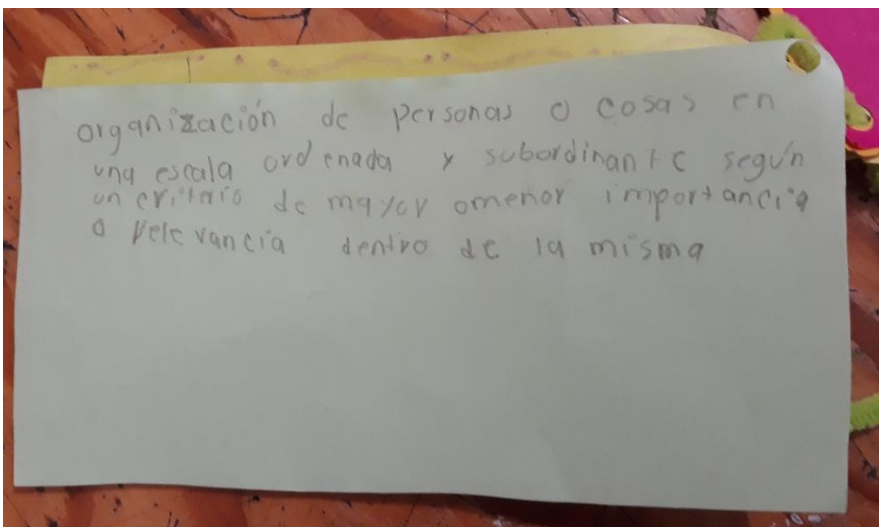 organización de personas o cosas en
una escala ordenada y subordinante según
un criterio de mayor omenor importancia
o relevancia dentro de la misma